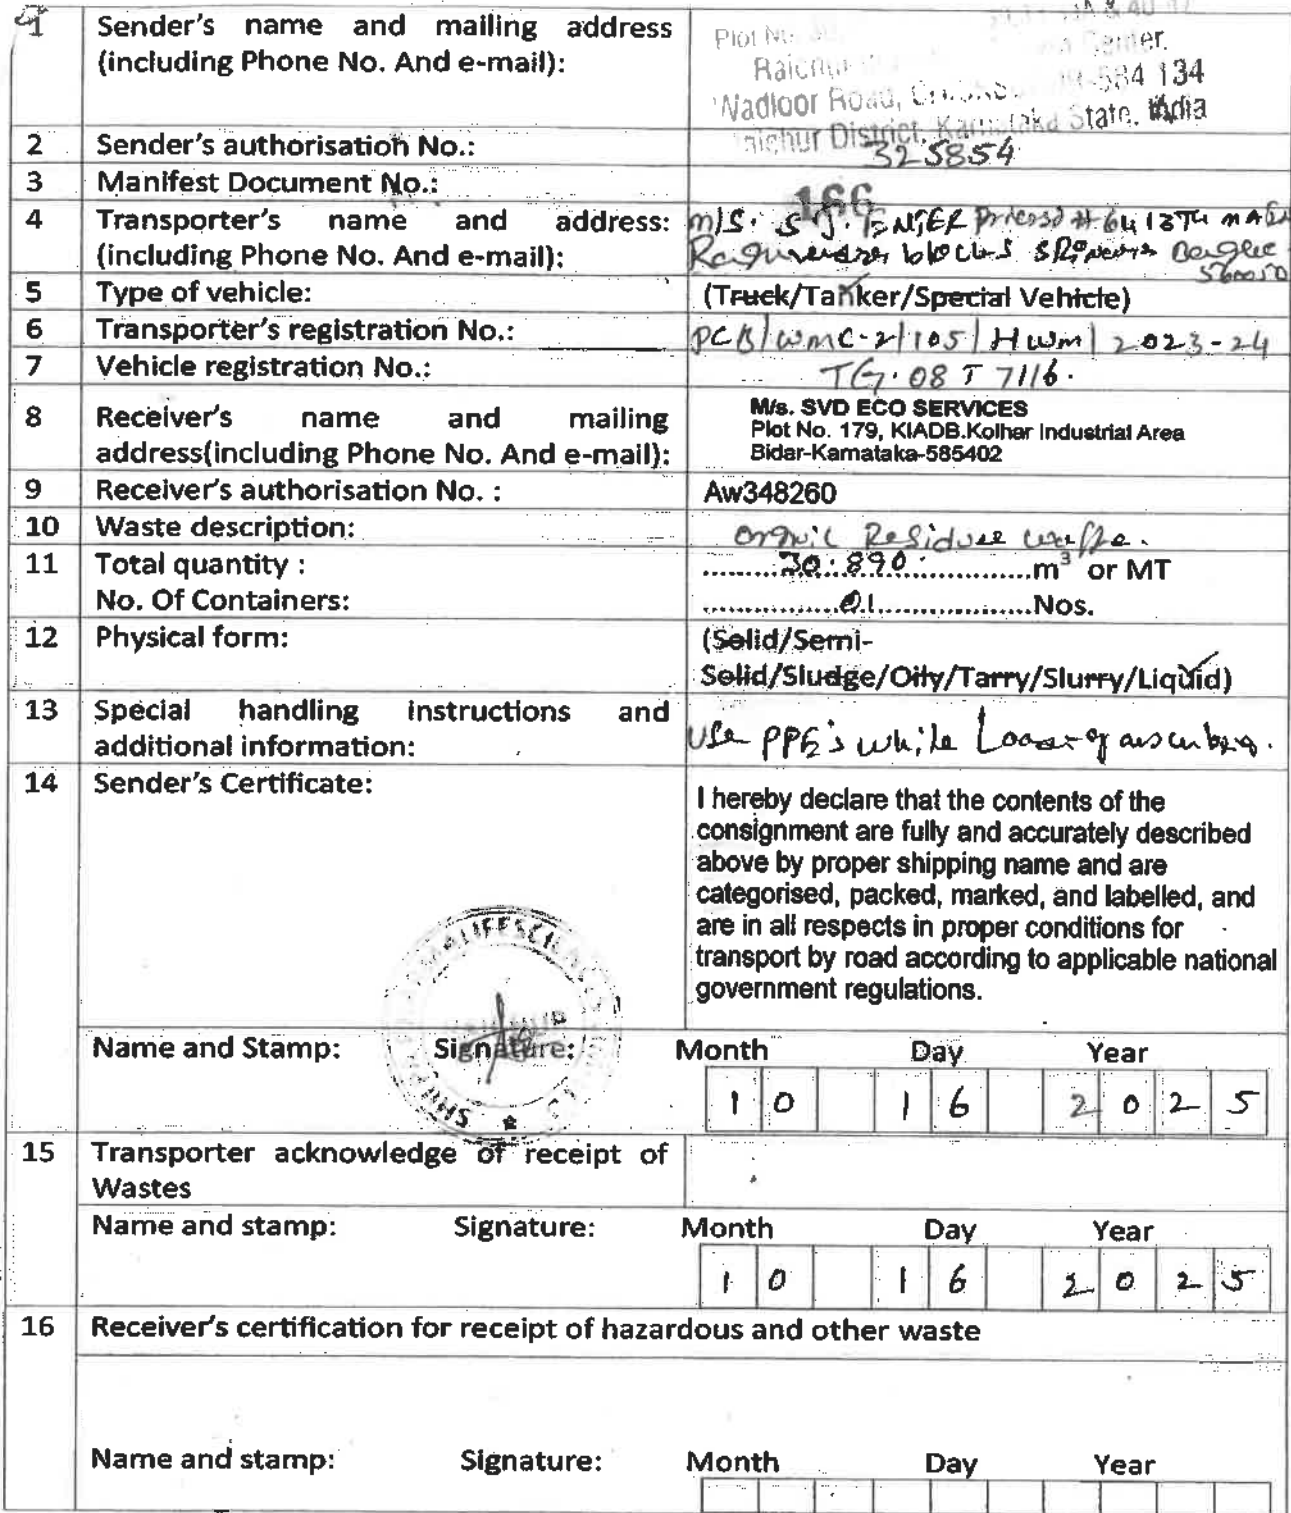 1 Sender's name and mailing address
(including Phone No. And e-mail):
Plot No.
Center.
584 134
Wadloor Road,
District, Karnataka State. India
2 Sender's authorisation No.: 325854
3 Manifest Document No.: 166
4 Transporter's name and address:
(including Phone No. And e-mail):
M/S. S J. # 64 13TH MAIN
blocks
560050
5 Type of vehicle: (Truck/Tanker/Special Vehicle)
6 Transporter's registration No.: PCB/WMC-2/105/HWM/2023-24
7 Vehicle registration No.: TG.08 T 7116.
8 Receiver's name and mailing
address(including Phone No. And e-mail):
M/s. SVD ECO SERVICES
Plot No. 179, KIADB.Kolhar Industrial Area
Bidar-Karnataka-585402
9 Receiver's authorisation No. : Aw348260
10 Waste description: Organic Residue waste.
11 Total quantity : 30.890 m³ or MT
No. Of Containers: 01 Nos.
12 Physical form: (Solid/Semi-
Solid/Sludge/Oily/Tarry/Slurry/Liquid)
13 Special handling instructions and
additional information:
Use PPE's while
14 Sender's Certificate:
I hereby declare that the contents of the
consignment are fully and accurately described
above by proper shipping name and are
categorised, packed, marked, and labelled, and
are in all respects in proper conditions for
transport by road according to applicable national
government regulations.
Name and Stamp: Signature: Month Day Year
10 16 2025
15 Transporter acknowledge of receipt of
Wastes
Name and stamp: Signature: Month Day Year
10 16 2025
16 Receiver's certification for receipt of hazardous and other waste
Name and stamp: Signature: Month Day Year